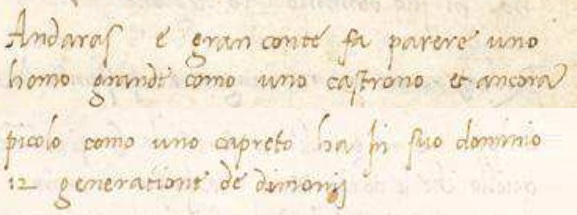 Andaras e gran conte fa parere uno
homo grande como uno castrono et ancora
picolo como uno capreto ha in suo dominio
12 generatione de dimonij